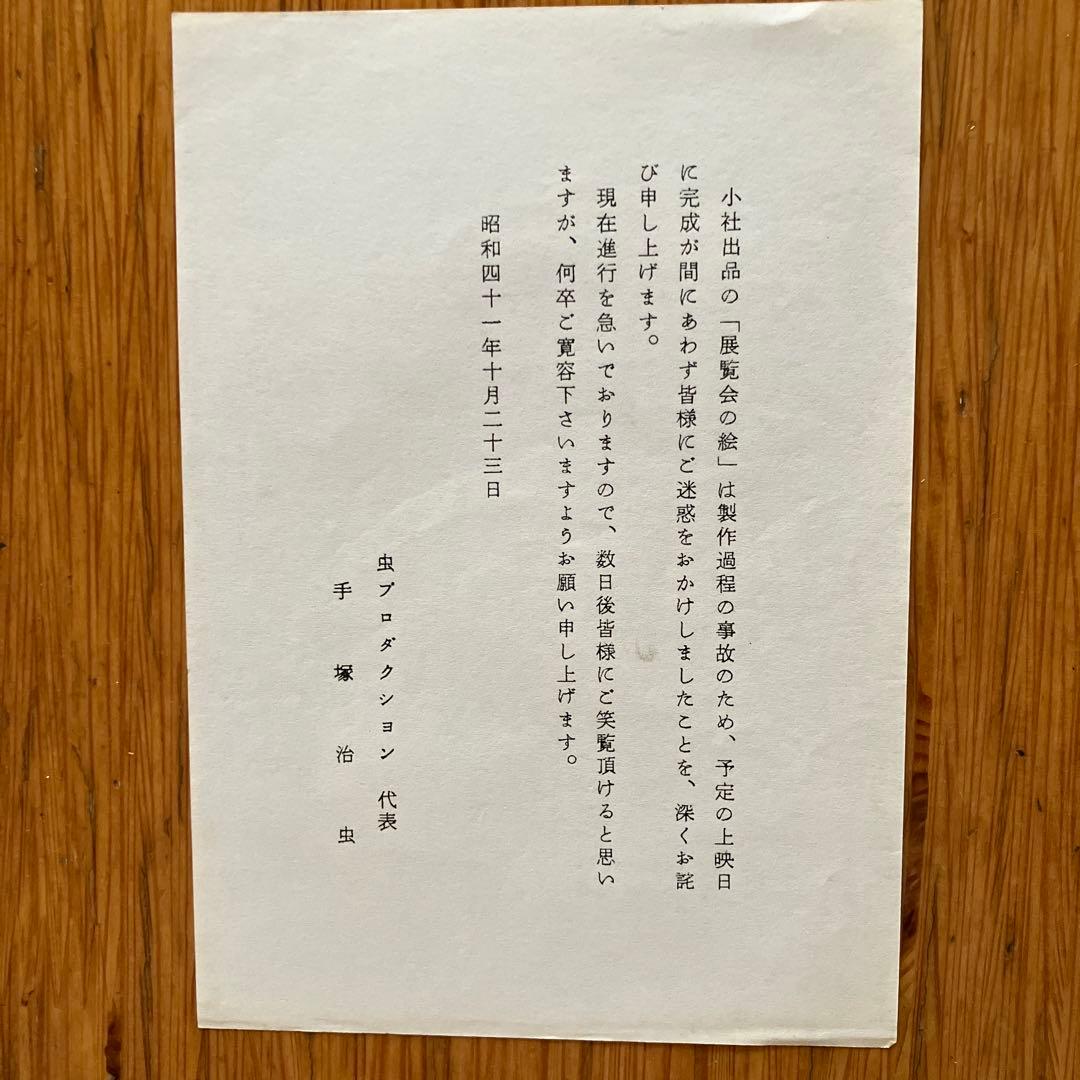 小社出品の「展覧会の絵」は製作過程の事故のため、予定の上映日
に完成が間にあわず皆様にご迷惑をおかけしましたことを、深くお詫
び申し上げます。
現在進行を急いでおりますので、数日後皆様にご笑覧頂けると思い
ますが、何卒ご寛容下さいますようお願い申し上げます。
昭和四十一年十月二十三日
虫プロダクション 代表
手塚治虫